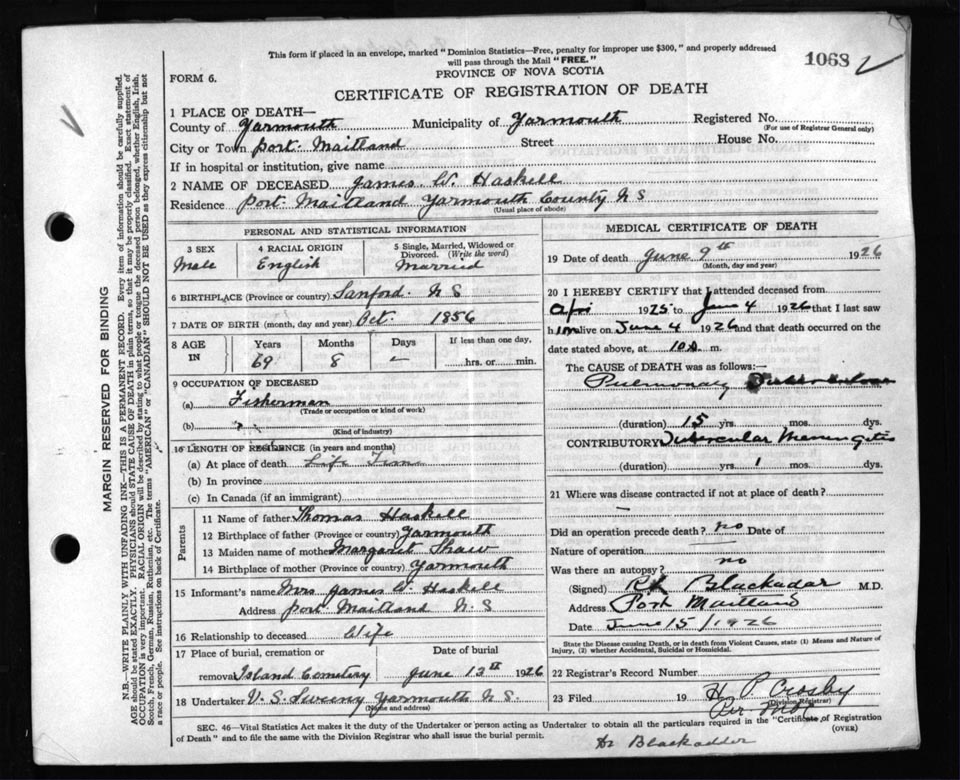 This form if placed in an envelope, marked "Dominion Statistics—Free, penalty for improper use $300," and properly addressed
will pass through the Mail "FREE."
1068
FORM 6.
PROVINCE OF NOVA SCOTIA
CERTIFICATE OF REGISTRATION OF DEATH
1 PLACE OF DEATH—
County of Yarmouth Municipality of Yarmouth Registered No.
(For use of Registrar General only)
City or Town Port Maitland Street House No.
If in hospital or institution, give name
2 NAME OF DECEASED James W. Haskell
Residence Port Maitland Yarmouth County N S
(Usual place of abode)
PERSONAL AND STATISTICAL INFORMATION
3 SEX Male
4 RACIAL ORIGIN English
5 Single, Married, Widowed or
Divorced. (Write the word)
Married
6 BIRTHPLACE (Province or country) Sanford N S
7 DATE OF BIRTH (month, day and year) Oct. 1856
8 AGE IN
Years Months Days If less than one day,
69 8 — hrs. or min.
9 OCCUPATION OF DECEASED
(a) Fisherman
(Trade or occupation or kind of work)
(b)
(Kind of industry)
10 LENGTH OF RESIDENCE (in years and months)
(a) At place of death Life Time
(b) In province
(c) In Canada (if an immigrant)
Parents
11 Name of father Thomas Haskell
12 Birthplace of father (Province or country) Yarmouth
13 Maiden name of mother Margaret Shaw
14 Birthplace of mother (Province or country) Yarmouth
15 Informant's name Mrs James W. Haskell
Address Port Maitland N S
16 Relationship to deceased Wife
17 Place of burial, cremation or Date of burial
removal Island Cemetery June 13th 1926
18 Undertaker V. S. Sweeny Yarmouth N. S.
(Name and address)
MEDICAL CERTIFICATE OF DEATH
19 Date of death June 9th 1926
(Month, day and year)
20 I HEREBY CERTIFY that I attended deceased from
Apri 1925 to June 4 1926 that I last saw
him alive on June 4 1926 and that death occurred on the
date stated above, at 10 a m.
The CAUSE of DEATH was as follows:—
Pulmonary Tuberculosis
(duration) 15 yrs. mos. dys.
CONTRIBUTORY Tubercular Meningitis
(duration) yrs. 1 mos. dys.
21 Where was disease contracted if not at place of death?
—
Did an operation precede death? no Date of
Nature of operation
Was there an autopsy? no
(Signed) Blackadar M.D.
Address Port Maitland
Date June 15/1926
State the Disease Causing Death, or in death from Violent Causes, state (1) Means and Nature of
Injury, (2) whether Accidental, Suicidal or Homicidal.
22 Registrar's Record Number
23 Filed 19 H P Crosby
(Division Registrar)
Per
SEC. 46—Vital Statistics Act makes it the duty of the Undertaker or person acting as Undertaker to obtain all the particulars required in the "Certificate of Registration
of Death" and to file the same with the Division Registrar who shall issue the burial permit.
(OVER)
Dr Blackadder
MARGIN RESERVED FOR BINDING
N.B.—WRITE PLAINLY WITH UNFADING INK—THIS IS A PERMANENT RECORD. Every item of information should be carefully supplied.
AGE should be stated EXACTLY. PHYSICIANS should STATE CAUSE OF DEATH in plain terms, so that it may be properly classified. Exact statement of
OCCUPATION is very important. RACIAL ORIGIN will be described by stating to what people or tongue the deceased person belonged, whether English, Irish,
Scotch, French, German, Russian, Ruthenian, etc. The terms "AMERICAN" or "CANADIAN" SHOULD NOT BE USED as they express citizenship but not
a race or people. See instructions on back of Certificate.